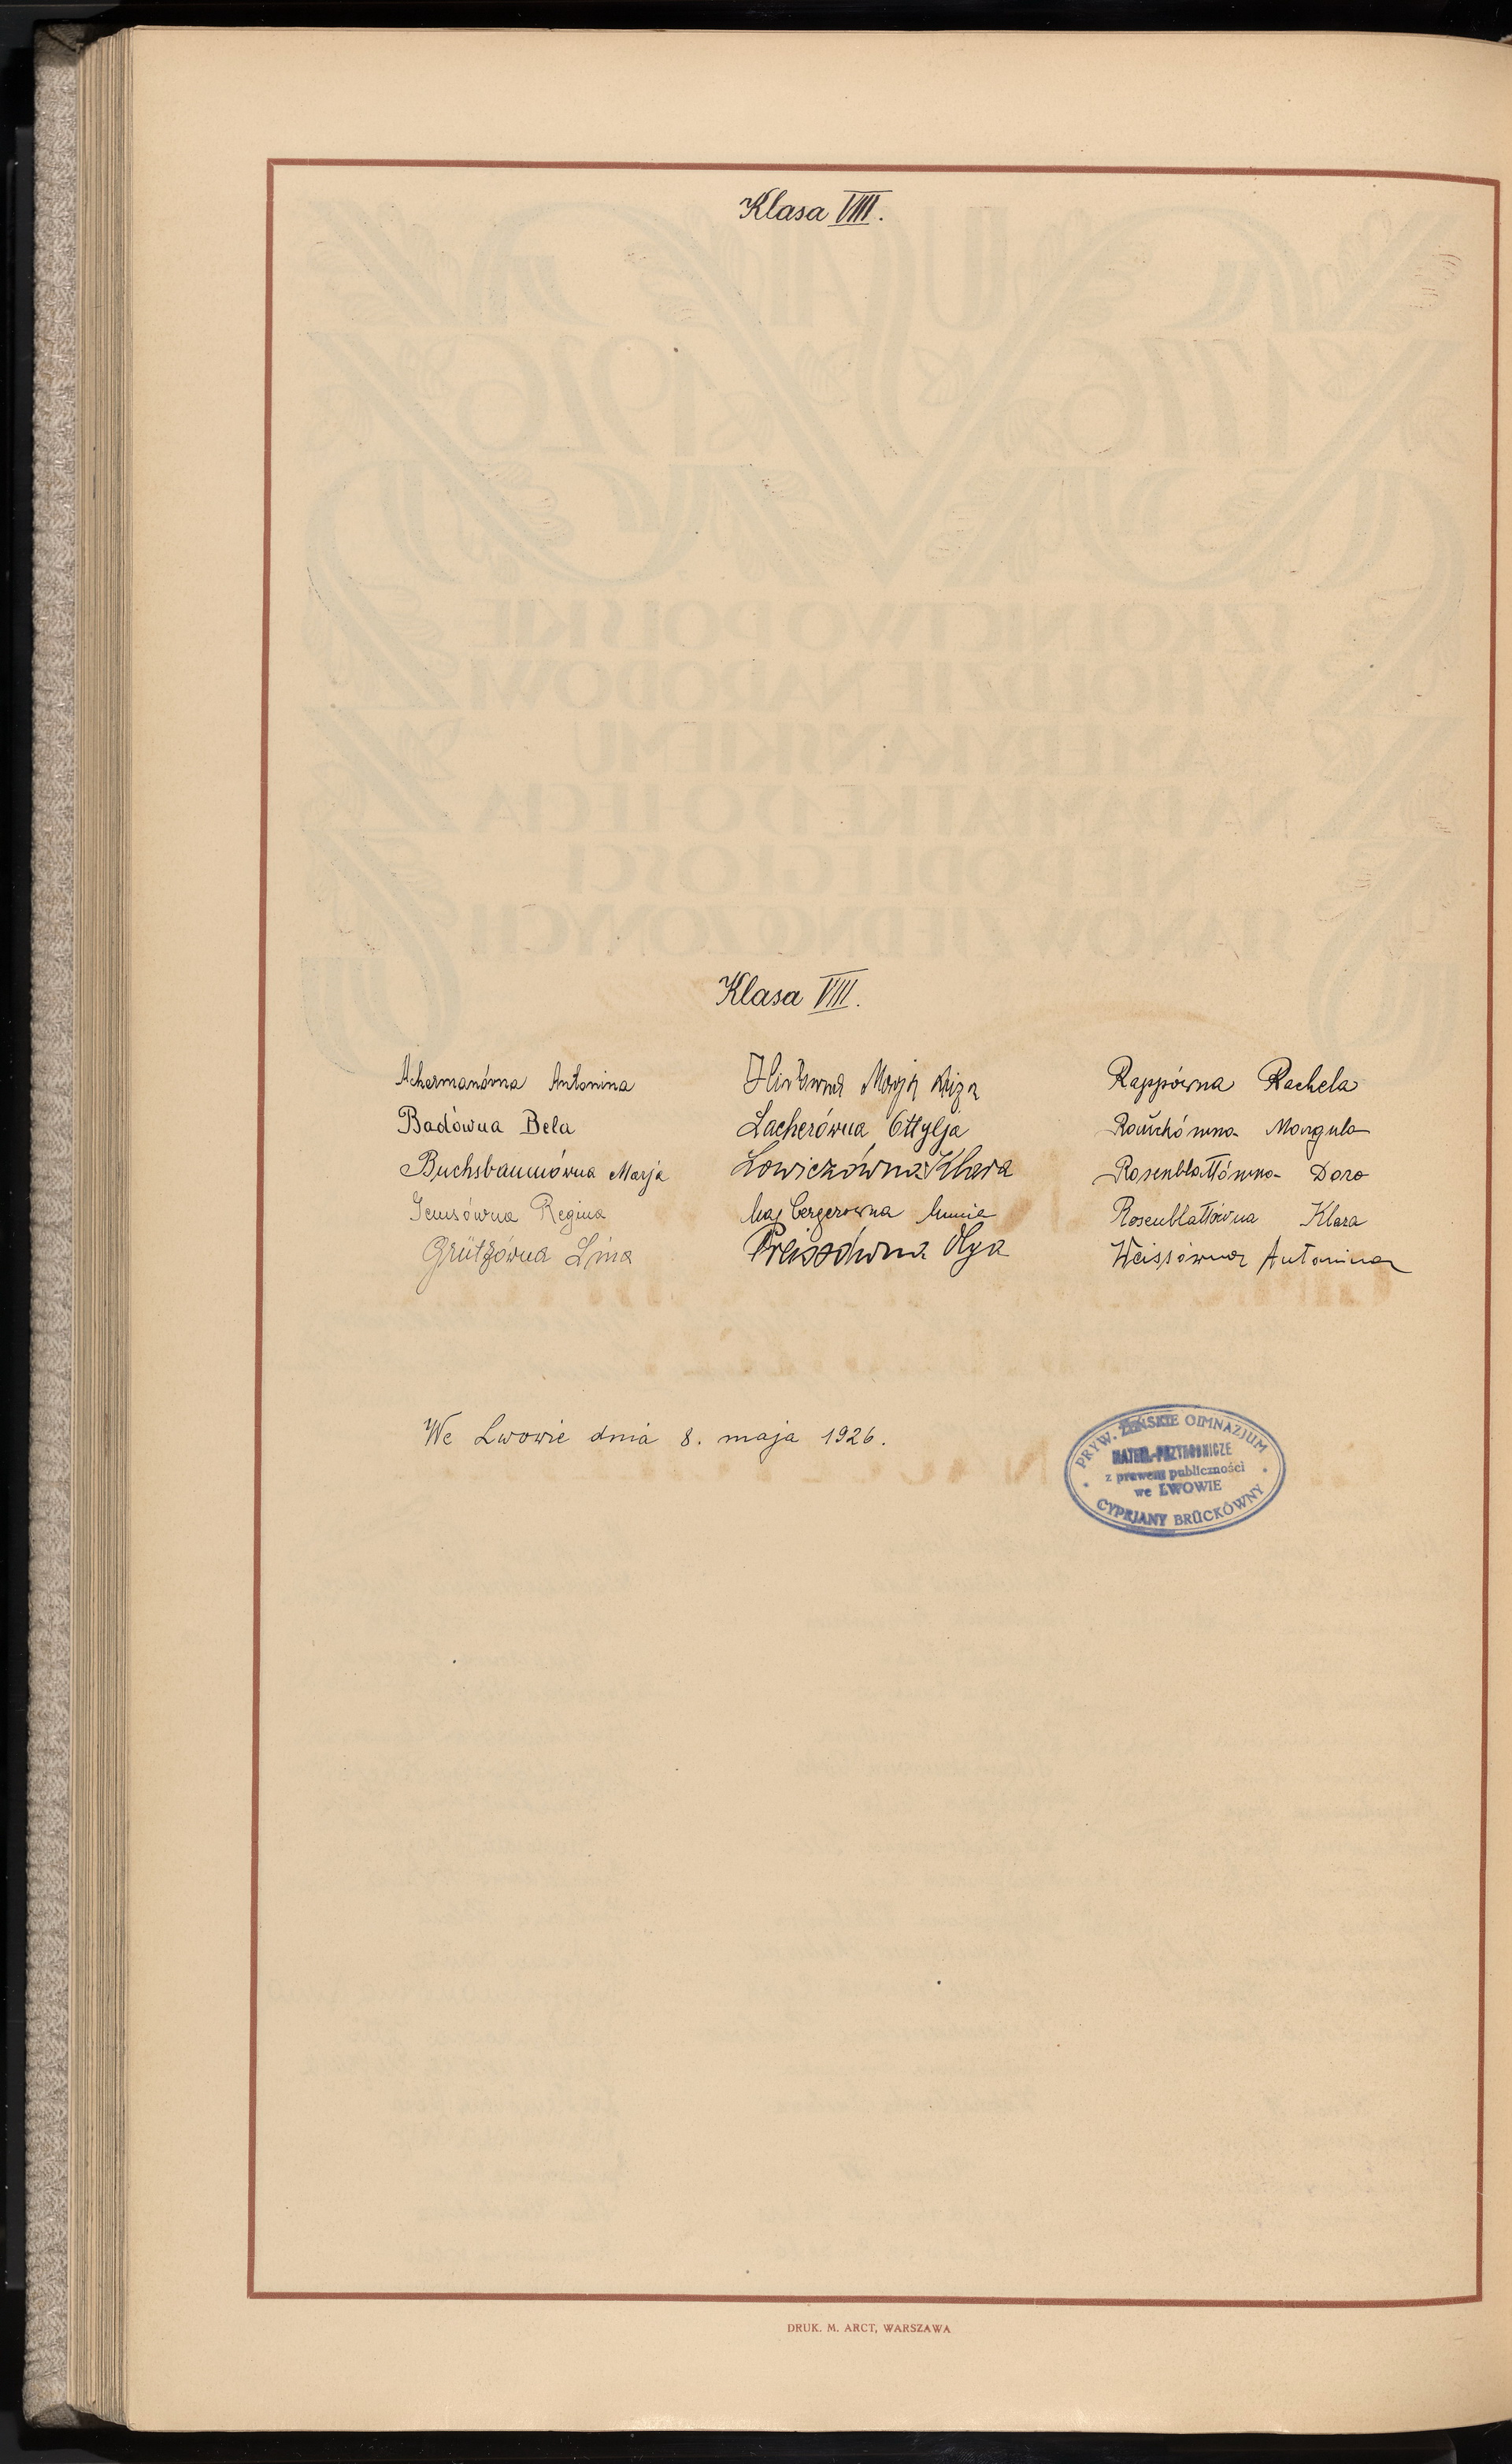 Klasa VIII.
Klasa VIII.
Achermanówna Antonina
Badówna Bela
Buchsbaumówna Marja
Regina
Grützówna Lina
Marja
Lacherówna Ottylja
Lowiczówna Klara
Majbergerowna Munia
Preissówna Olga
Rappówna Rachela
Rauchówna Margula
Rosenblattówna Dora
Rosenblattówna Klara
Weissówna Antonina
We Lwowie dnia 8. maja 1926.
PRYW. ŻEŃSKIE GIMNAZJUM
MATEM.-PRZYRODNICZE
z prawem publiczności
we LWOWIE
CYPRJANY BRÜCKÓWNY
DRUK. M. ARCT, WARSZAWA